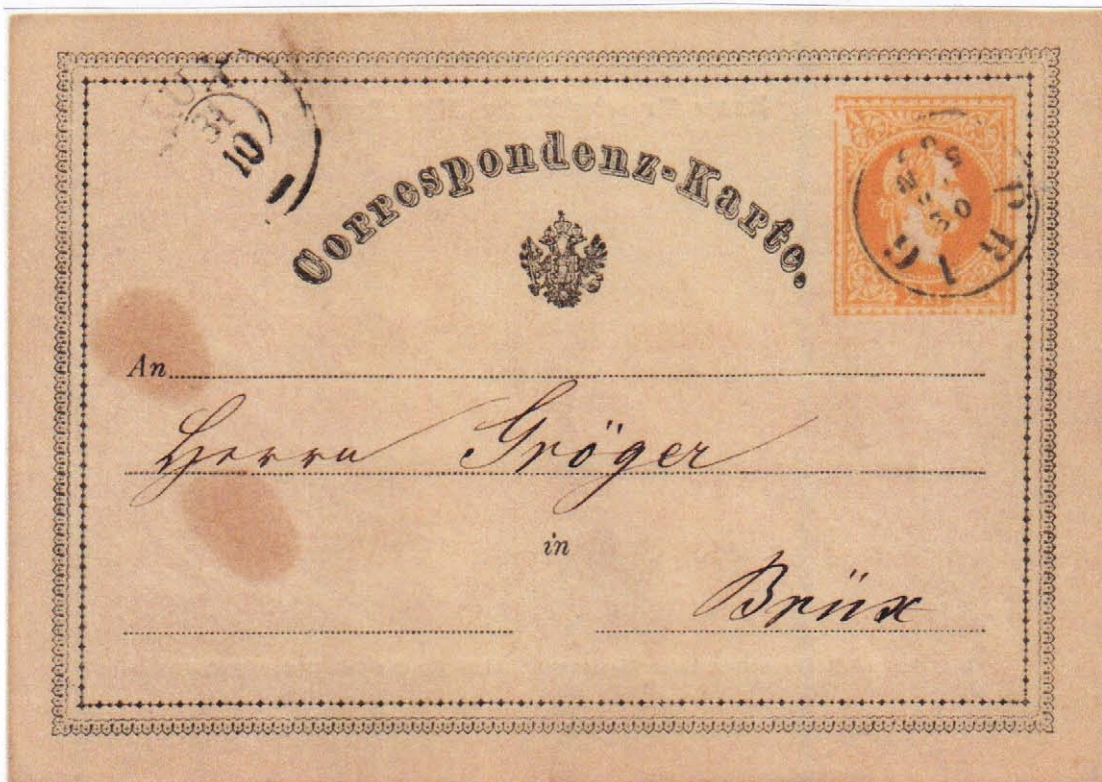 31
10
Correspondenz-Karte.
An
Herrn Gröger
in
Brüx